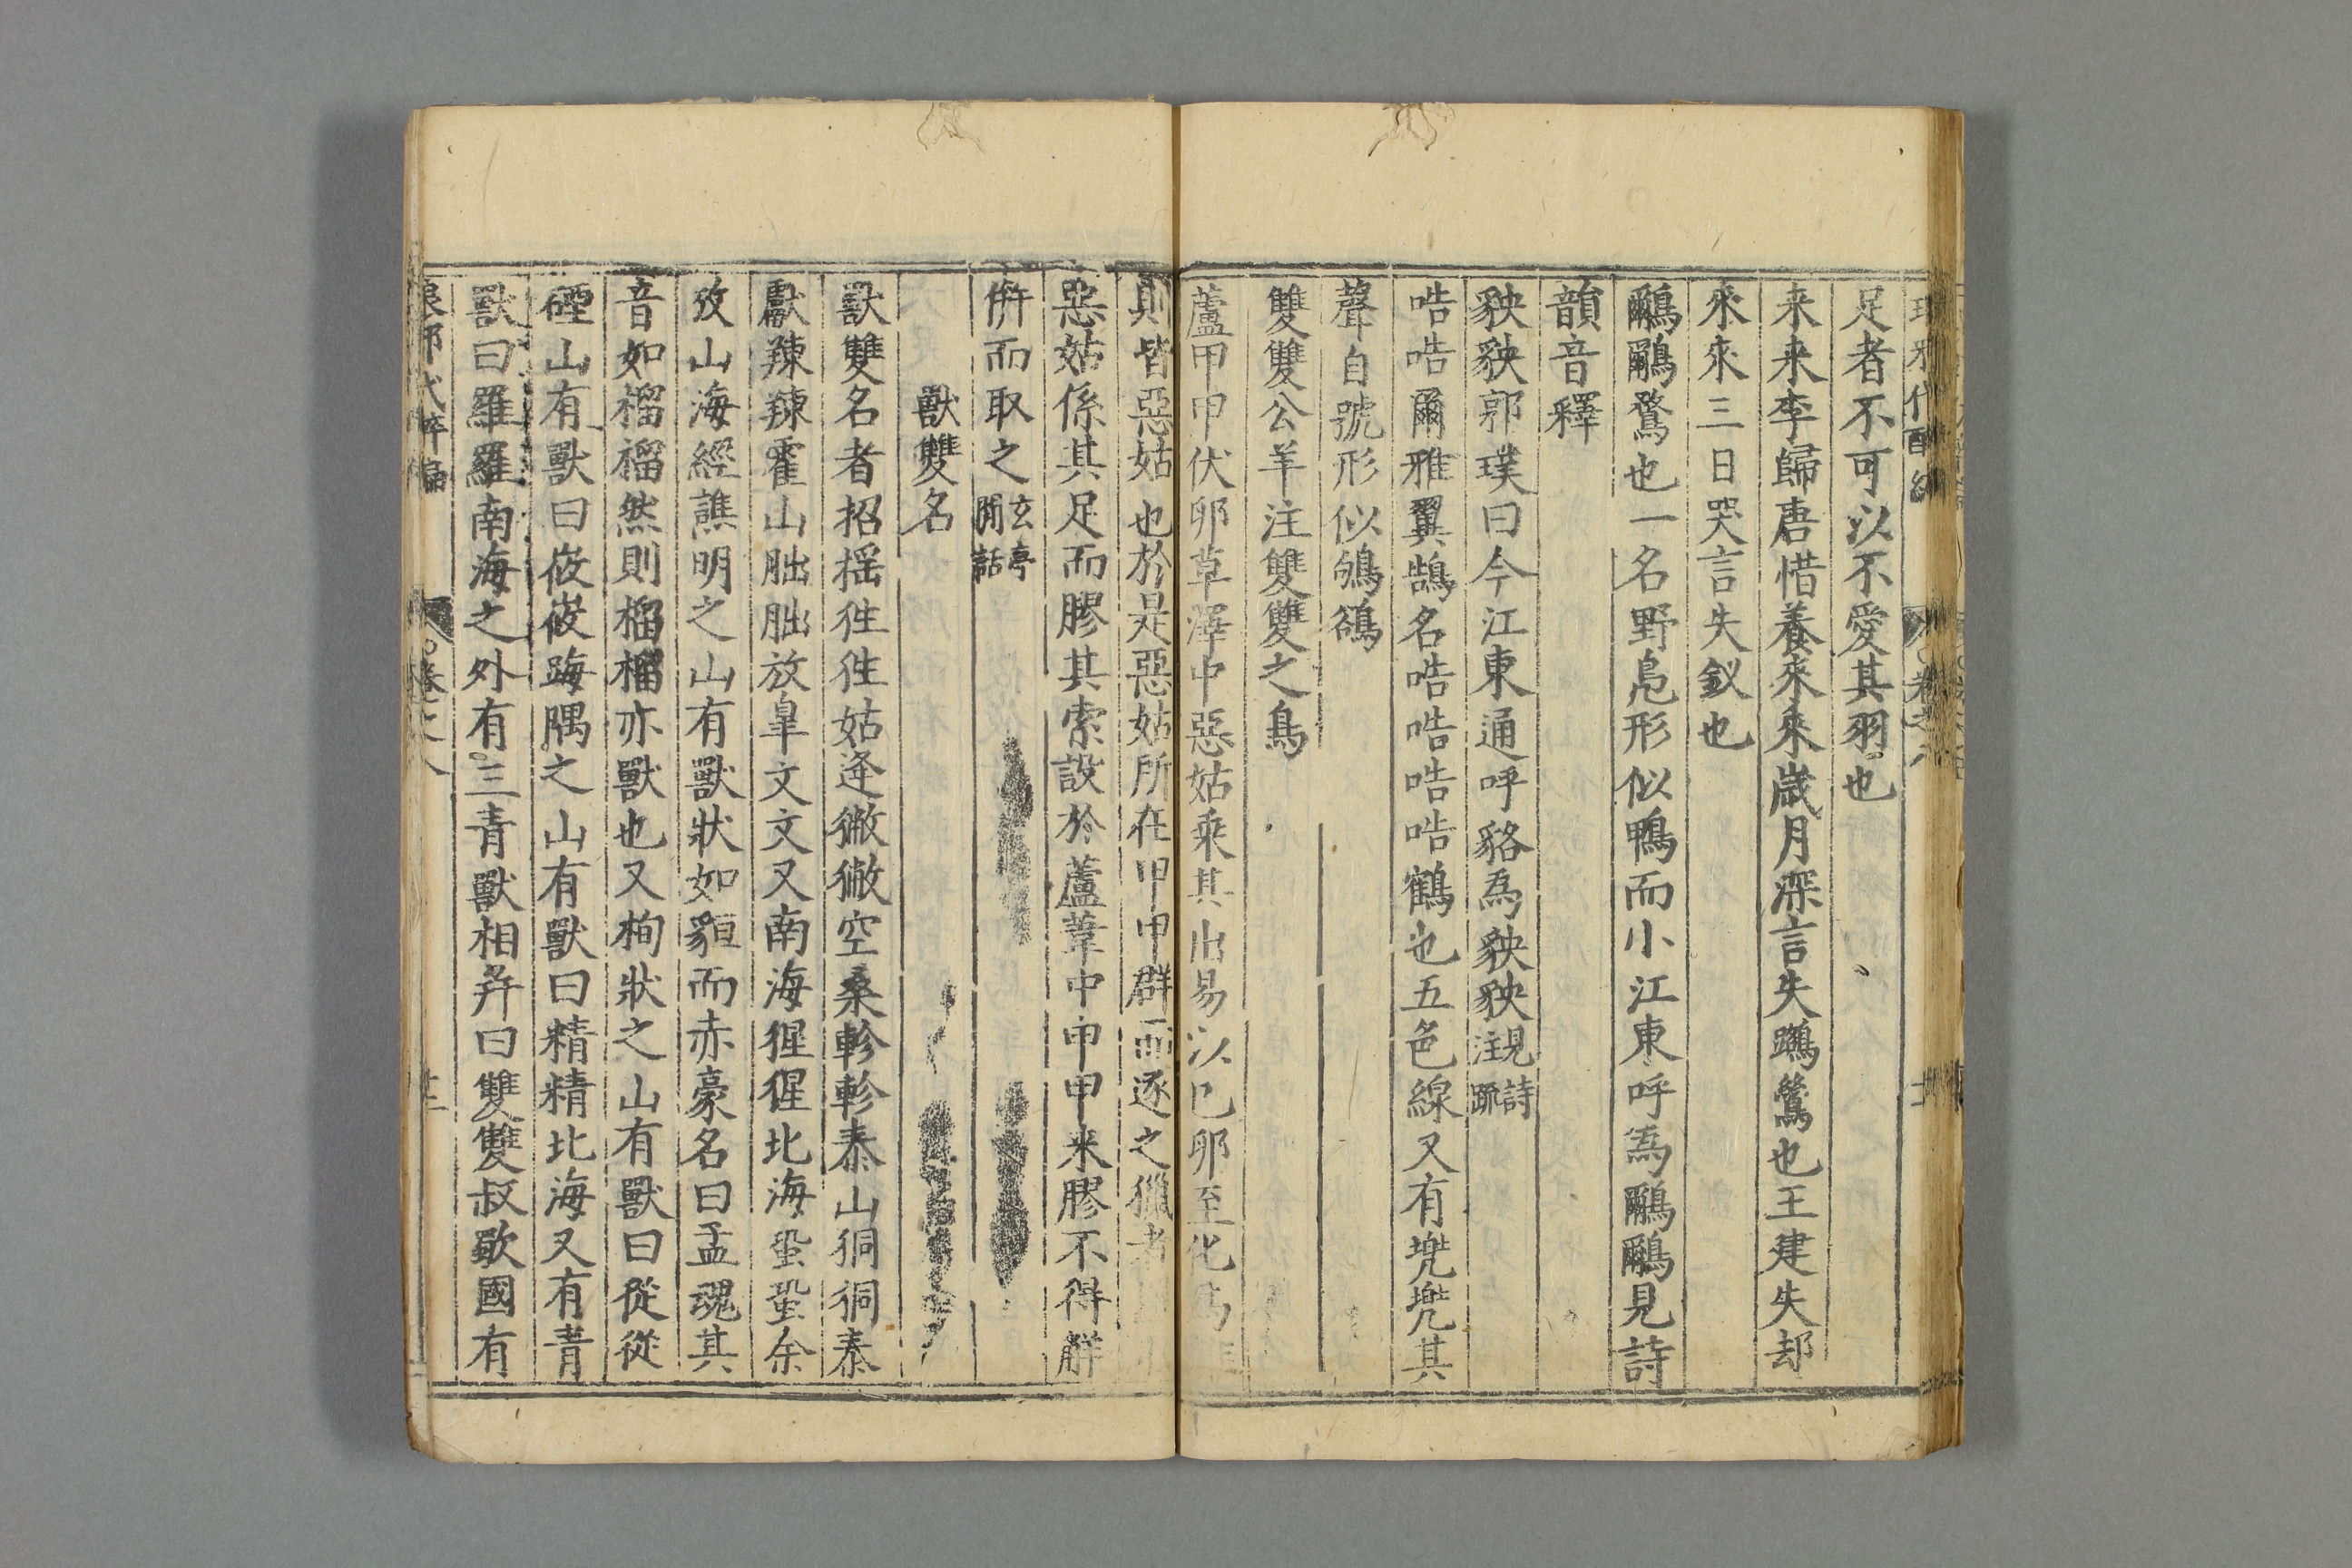 足者不可以不愛其羽也
来来李歸唐惜養來來歲月深言失鸚鶯也王建失却
來來三日哭言失釵也
鸍鸍鶩也一名野鳧形似鴨而小江東呼爲鸍鸍見詩
韻音釋
貁貁郭璞曰今江東通呼貉爲貁貁見詩注䟽
哠哠爾雅翼鵠名哠哠哠哠鶴也五色線又有兠兠其
聲自號形似鳩鵒
雙雙公羊注雙雙之鳥
蘆甲甲伏卵草澤中惡姑乘其出易以己卵至化爲
則皆惡姑也於是惡姑所在甲甲群而逐之獵者
惡姑係其足而膠其索設於蘆葦中甲甲来膠不得解
併而取之玄亭閒話
獸雙名
獸雙名者招摇狌狌姑逢獙獙空桑軫軫泰山狪狪泰
獻㹨㹨霍山朏朏放臯文文又南海猩猩北海蛩蛩余
攷山海經譙明之山有獸狀如貆而赤豪名曰孟魂其
音如榴榴然則榴榴亦獸也又栒狀之山有獸曰從從
硾山有獸曰峳峳踇隅之山有獸曰精精北海又有青
獸曰羅羅南海之外有三青獸相并曰雙雙叔歜國有